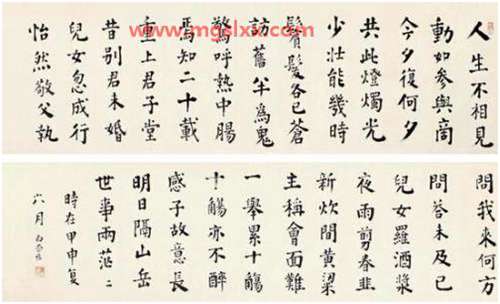 www.mgslxx.com
人生不相見
動如參與商
今夕復何夕
共此燈燭光
少壯能幾時
鬢髮各已蒼
訪舊半爲鬼
驚呼熱中腸
焉知二十載
重上君子堂
昔別君未婚
兒女忽成行
怡然敬父執
問我來何方
問答未及已
兒女羅酒漿
夜雨剪春韭
新炊間黃粱
主稱會面難
一舉累十觴
十觴亦不醉
感子故意長
明日隔山岳
世事兩茫〻
時在甲申夏
六月